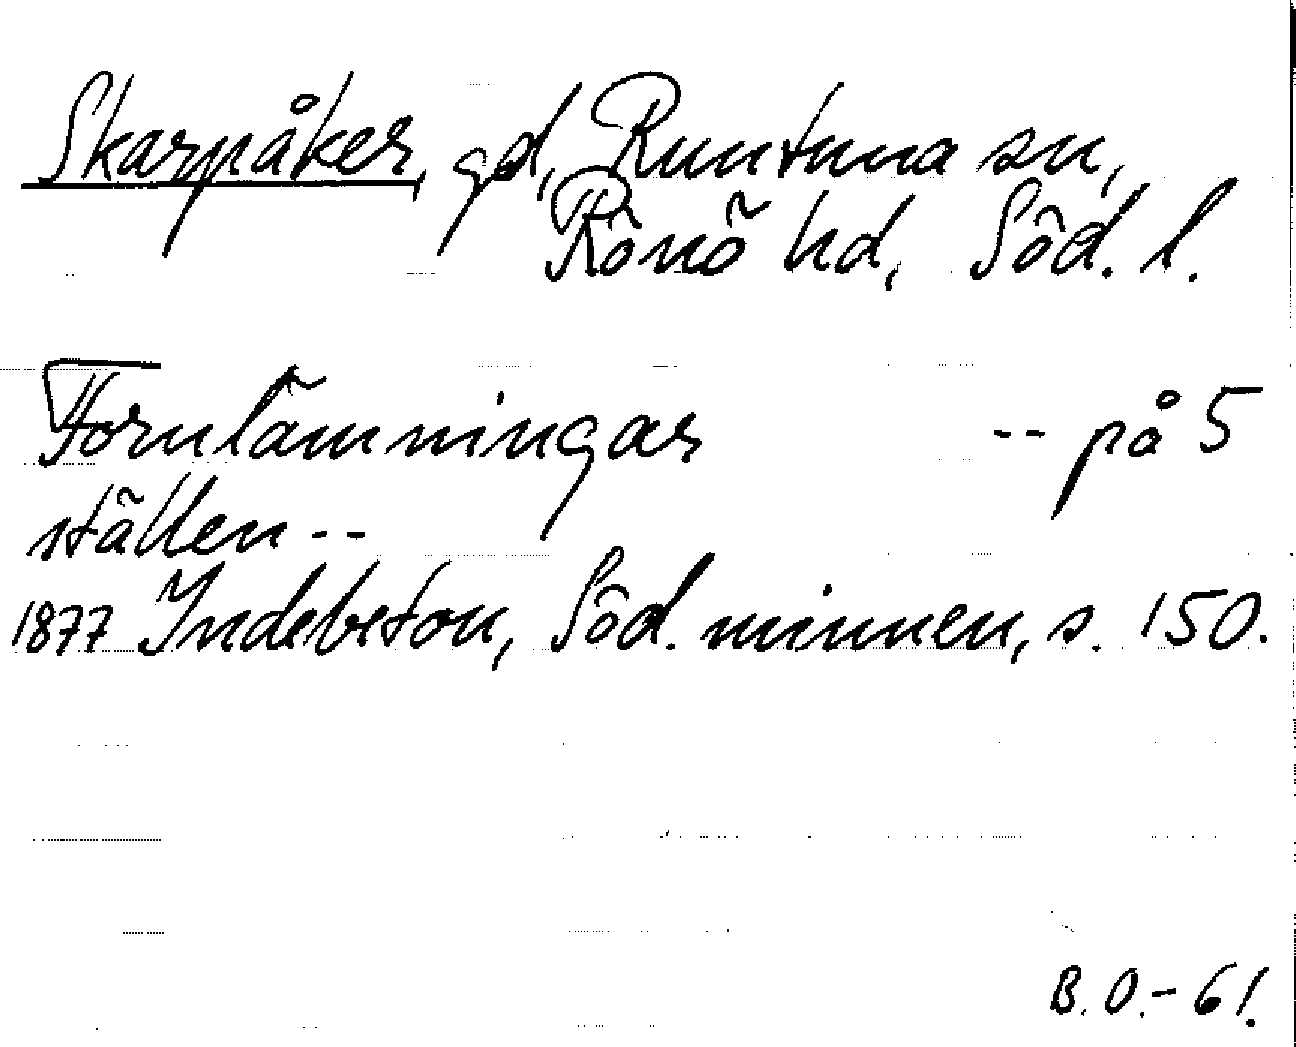 Skarpåker, gd, Runtuna sn,
Rönö hd, Söd. l.
Fornlämningar -- på 5
ställen --
1877 Indebetou, Söd. minnen, s. 150.
B.O.-61.